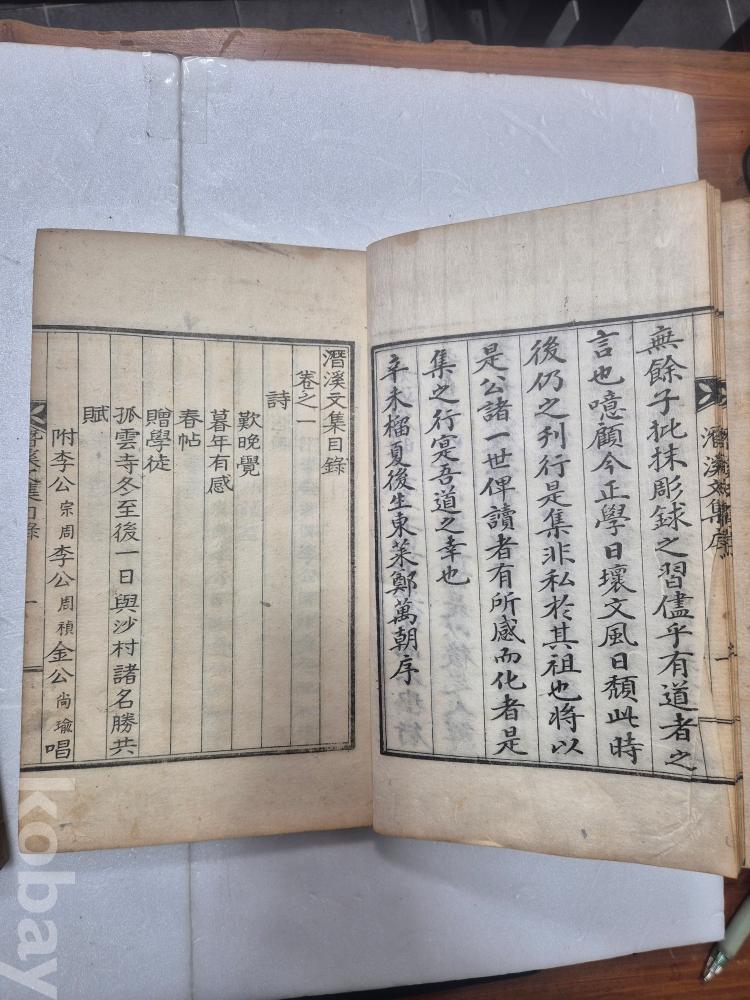 無餘子批抹彫鉥之習儘乎有道者之
言也噫顧今正學日壞文風日頹此時
後仍之刊行是集非私於其祖也將以
是公諸一世俾讀者有所感而化者是
集之行寔吾道之幸也
辛未榴夏後生東萊鄭萬朝序
潛溪文集序
一
潛溪文集目錄
卷之一
詩
歎晚覺
暮年有感
春帖
贈學徒
孤雲寺冬至後一日與沙村諸名勝共
賦
附李公宗周李公周禎金公尙瑜唱
一
kobay